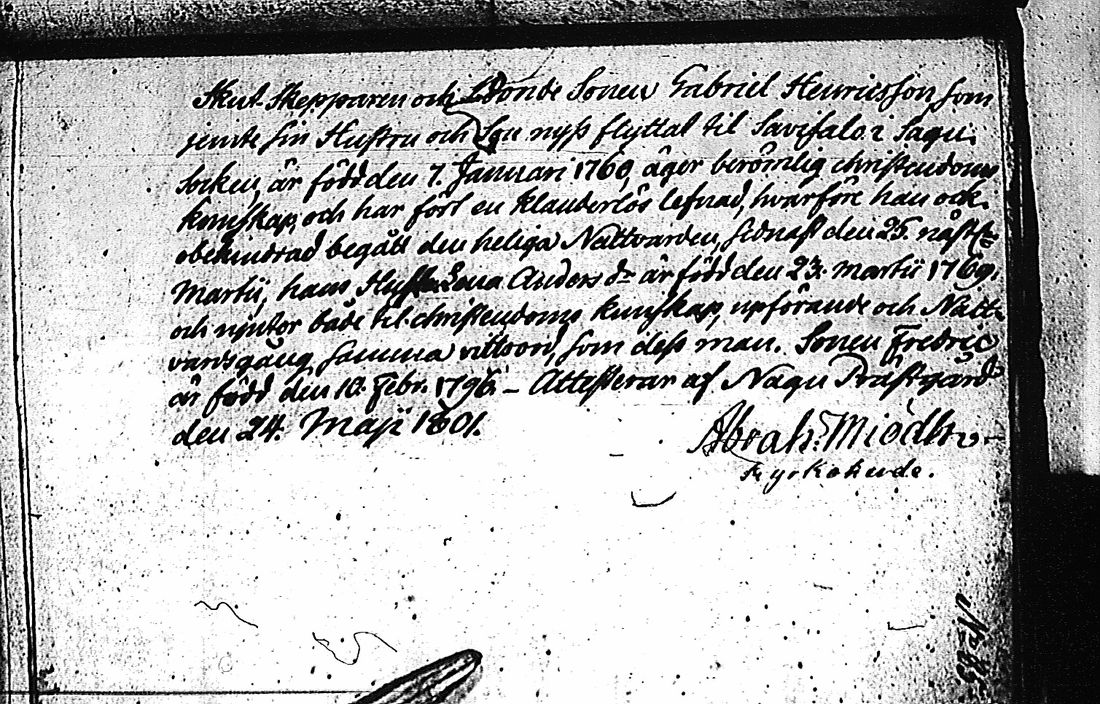 Skut Skepparen och Bonde Sonen Gabriel Henricsson som
jemte sin Hustru och Son nyss flyttat til Savisalo i Sagu
Socken, är född den 7. Januari 1760, äger berömlig christendoms
kunskap, och har fört en klanderlös lefnad, hvarföre han ock
obehindrad begått den heliga Nattvarden, sidnast den 25. näst
Martii, hans Hustru Lena Anders dr är född den 23. martii 1769.
och njutor både til christendoms kunskap, upförande och Natt-
vardsgång, samma vittsord, som dess man. Sonen Fredric
är född den 10. Febr. 1796. – Attesterar af Nagu Prästgård
den 24. Maji 1801.
Abrah:
Kyrkoherde.